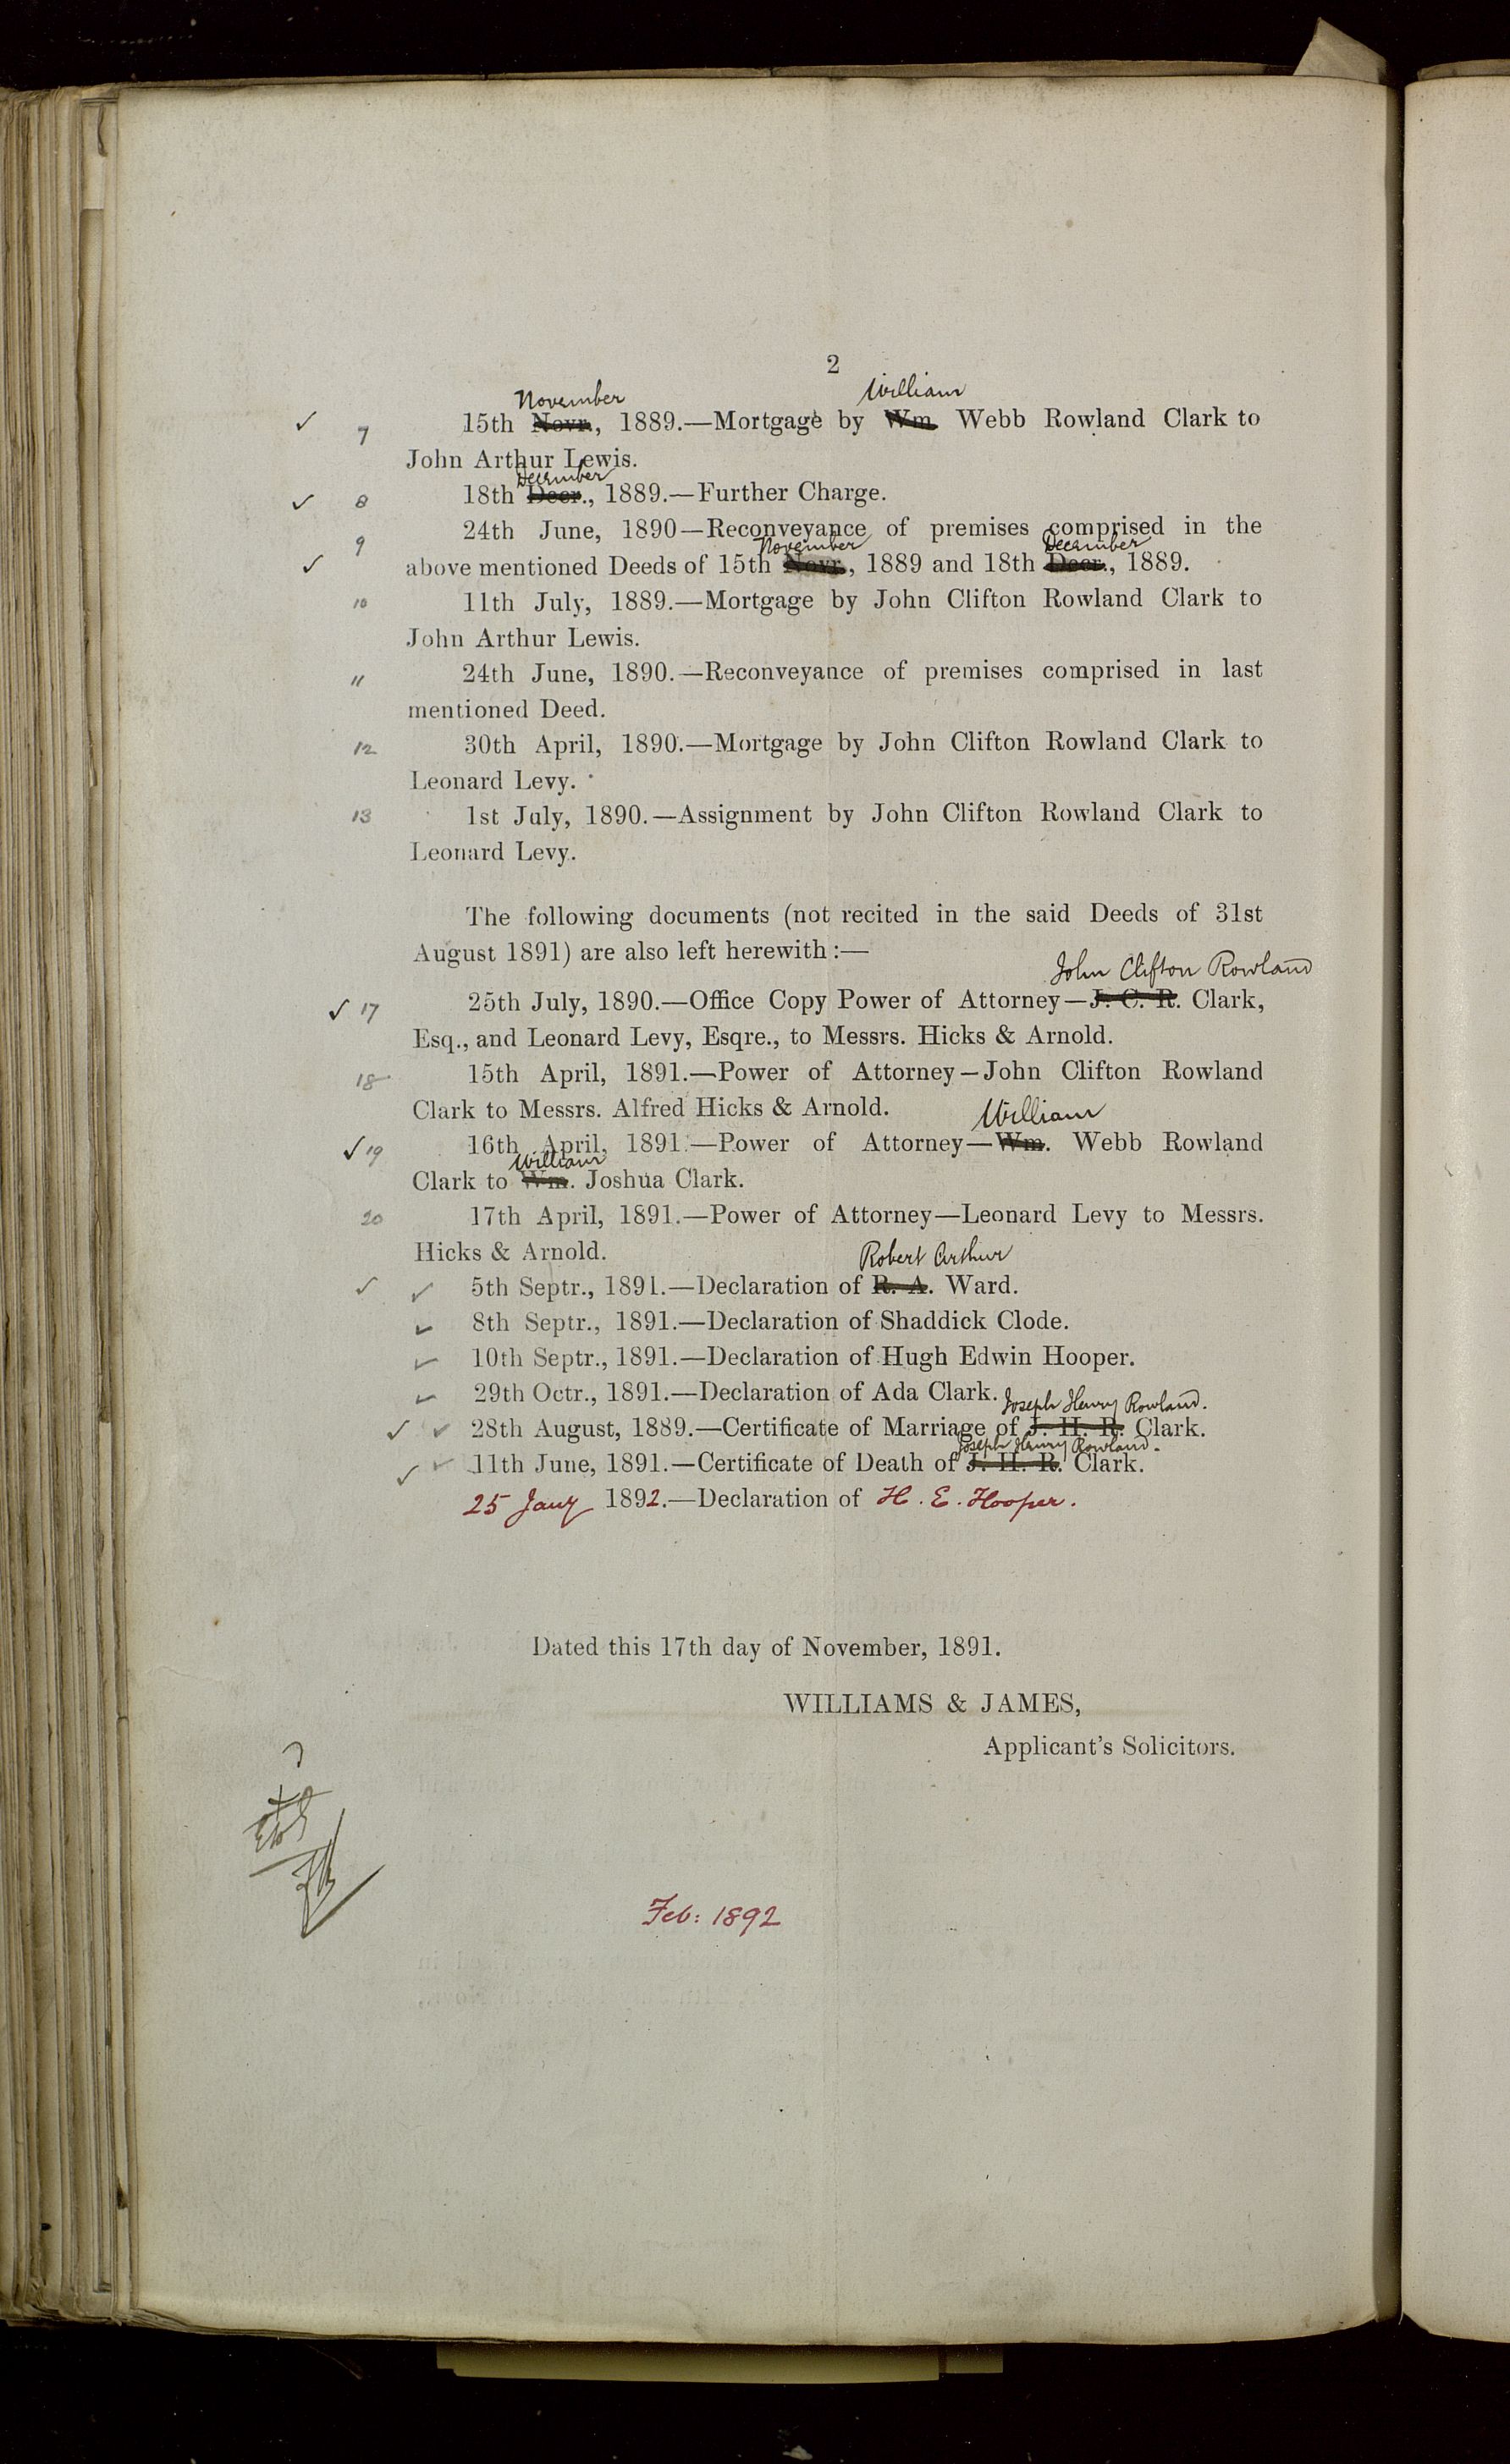 2
November William
✓ 7 15th Novr., 1889.—Mortgage by Wm. Webb Rowland Clark to
John Arthur Lewis.
December
✓ 8 18th Decr., 1889.—Further Charge.
9 24th June, 1890—Reconveyance of premises comprised in the
November December
✓ above mentioned Deeds of 15th Novr., 1889 and 18th Decr., 1889.
10 11th July, 1889.—Mortgage by John Clifton Rowland Clark to
John Arthur Lewis.
11 24th June, 1890.—Reconveyance of premises comprised in last
mentioned Deed.
12 30th April, 1890.—Mortgage by John Clifton Rowland Clark to
Leonard Levy.
13 1st July, 1890.—Assignment by John Clifton Rowland Clark to
Leonard Levy.
The following documents (not recited in the said Deeds of 31st
August 1891) are also left herewith :—
John Clifton Rowland
✓ 17 25th July, 1890.—Office Copy Power of Attorney—J. C. R. Clark,
Esq., and Leonard Levy, Esqre., to Messrs. Hicks & Arnold.
18 15th April, 1891.—Power of Attorney—John Clifton Rowland
Clark to Messrs. Alfred Hicks & Arnold.
William
✓ 19 16th April, 1891.—Power of Attorney—Wm. Webb Rowland
William
Clark to Wm. Joshua Clark.
20 17th April, 1891.—Power of Attorney—Leonard Levy to Messrs.
Hicks & Arnold.
Robert Arthur
✓ ✓ 5th Septr., 1891.—Declaration of R. A. Ward.
✓ 8th Septr., 1891.—Declaration of Shaddick Clode.
✓ 10th Septr., 1891.—Declaration of Hugh Edwin Hooper.
✓ 29th Octr., 1891.—Declaration of Ada Clark.
Joseph Henry Rowland.
✓ ✓ 28th August, 1889.—Certificate of Marriage of J. H. R. Clark.
Joseph Henry Rowland.
✓ ✓ 11th June, 1891.—Certificate of Death of J. H. R. Clark.
25 Jany 1892.—Declaration of H. E. Hooper.
Dated this 17th day of November, 1891.
WILLIAMS & JAMES,
Applicant's Solicitors.
Feb: 1892